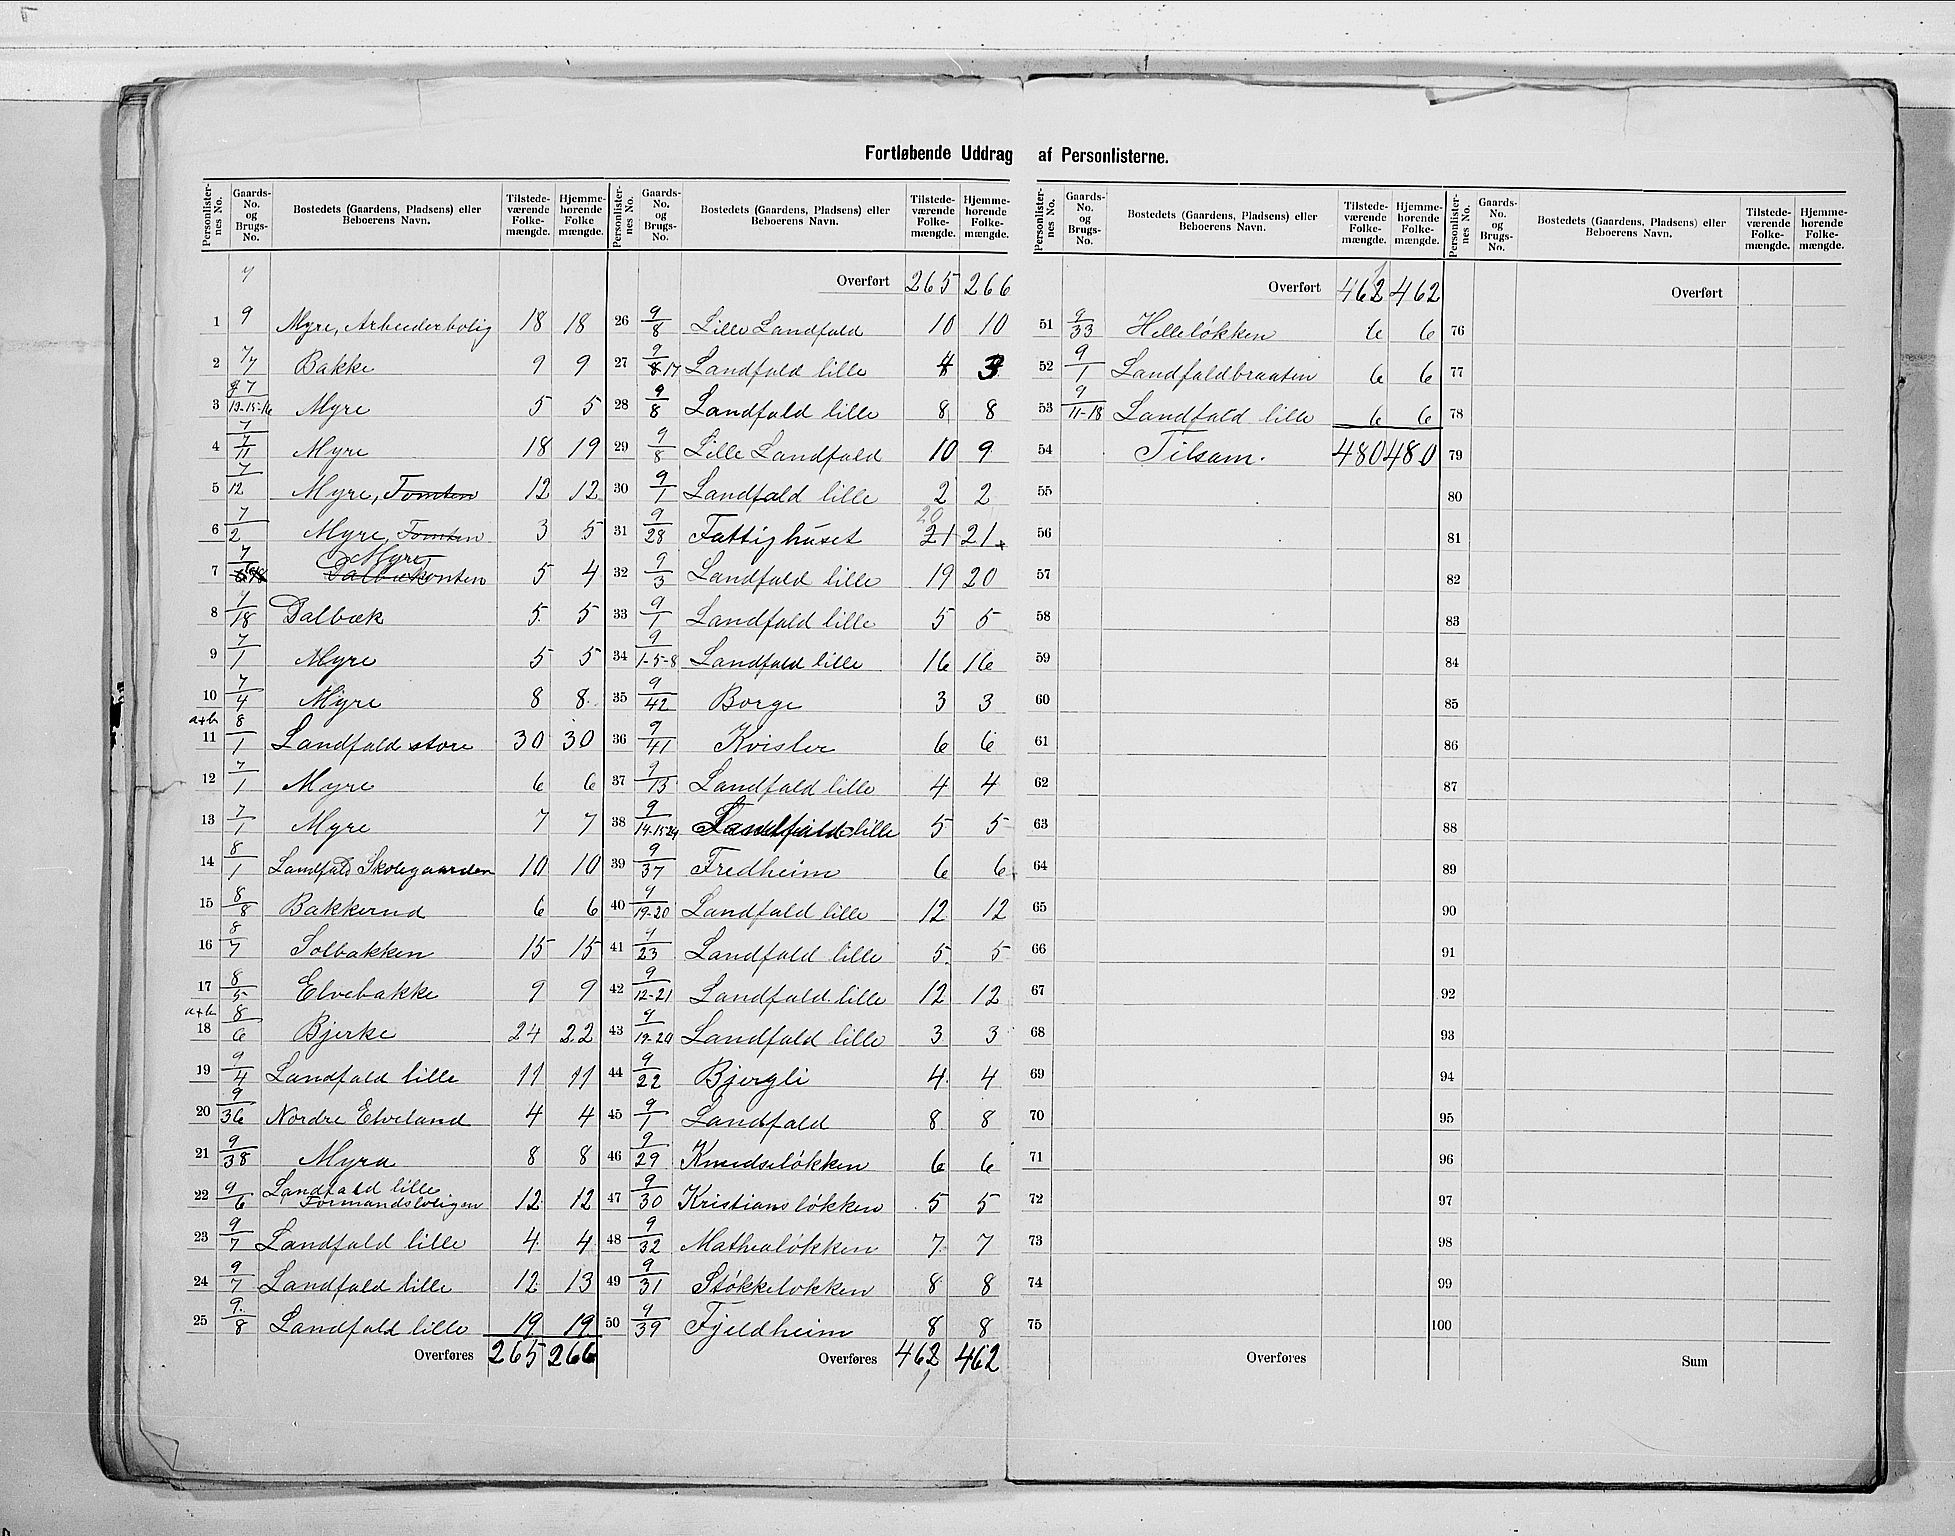 Fortløbende Uddrag af Personlisterne.
Personlister-nes No. Gaards-No. og Brugs-No. Bostedets (Gaardens, Pladsens) eller Beboerens Navn. Tilstede-værende Folke-mængde. Hjemme-hørende Folke mængde.
1 7/9 Myre, Arbeiderbolig 18 18
2 7/7 Bakke 9 9
3 7/13-15-16 Myre 5 5
4 7/11 Myre 18 19
5 7/12 Myre, Tomten 12 12
6 7/2 Myre, Tomten 3 5
Myre
7 7 Dalbæktomten 5 4
8 7/18 Dalbæk 5 5
9 7/1 Myre 5 5
10 7/4 Myre 8 8
a+b
11 8/1 Landfald store 30 30
12 7/1 Myre 6 6
13 7/1 Myre 7 7
14 8/1 Landfald Skolegaarden 10 10
15 8/8 Bakkerud 6 6
16 8/7 Solbakken 15 15
17 8/5 Elvebakke 9 9
a+b
18 8/6 Bjerke 24 22
19 9/4 Landfald lille 11 11
20 9/36 Nordre Elveland 4 4
21 9/38 Myra 8 8
22 9/6 Landfald lille Formandsboligen 12 12
23 9/7 Landfald lille 4 4
24 9/7 Landfald lille 12 13
25 9/8 Landfald lille 19 19
Overføres 265 266
Personlister-nes No. Gaards-No. og Brugs-No. Bostedets (Gaardens, Pladsens) eller Beboerens Navn. Tilstede-værende Folke-mængde. Hjemme-hørende Folke-mængde.
Overført 265 266
26 9/8 Lille Landfald 10 10
27 9/8 17 Landfald lille 3
28 9/8 Landfald lille 8 8
29 9/8 Lille Landfald 10 9
30 9/1 Landfald lille 2 2
20
31 9/28 Fattighuset 21 21
32 9/3 Landfald lille 19 20
33 9/1 Landfald lille 5 5
34 9/1-5-8 Landfald lille 16 16
35 9/42 Borge 3 3
36 9/41 Kvisler 6 6
37 9/13 Landfald lille 4 4
38 9/14-15-24 Landfald lille 5 5
39 9/37 Fredheim 6 6
40 9/19-20 Landfald lille 12 12
41 9/23 Landfald lille 5 5
42 9/12-21 Landfald lille 12 12
43 9/19-20 Landfald lille 3 3
44 9/22 Bjergli 4 4
45 9/1 Landfald 8 8
46 9/29 Knudseløkken 6 6
47 9/30 Kristiansløkken 5 5
48 9/32 Mathealøkken 7 7
49 9/31 Støkkeløkken 8 8
50 9/39 Fjeldheim 8 8
Overføres 462 462
1
Personlister-nes No. Gaards-No. og Brugs-No. Bostedets (Gaardens, Pladsens) eller Beboerens Navn. Tilstede-værende Folke-mængde. Hjemme-hørende Folke-mængde.
1
Overført 462 462
51 9/33 Helleløkken 6 6
52 9/1 Landfaldbraaten 6 6
53 9/11-18 Landfald lille 6 6
54 Tilsam. 480 480
55
56
57
58
59
60
61
62
63
64
65
66
67
68
69
70
71
72
73
74
75
Overføres
Personlister-nes No. Gaards-No. og Brugs-No. Bostedets (Gaardens, Pladsens) eller Beboerens Navn. Tilstede-værende Folke-mængde. Hjemme-hørende Folke-mængde.
Overført
76
77
78
79
80
81
82
83
84
85
86
87
88
89
90
91
92
93
94
95
96
97
98
99
100
Sum